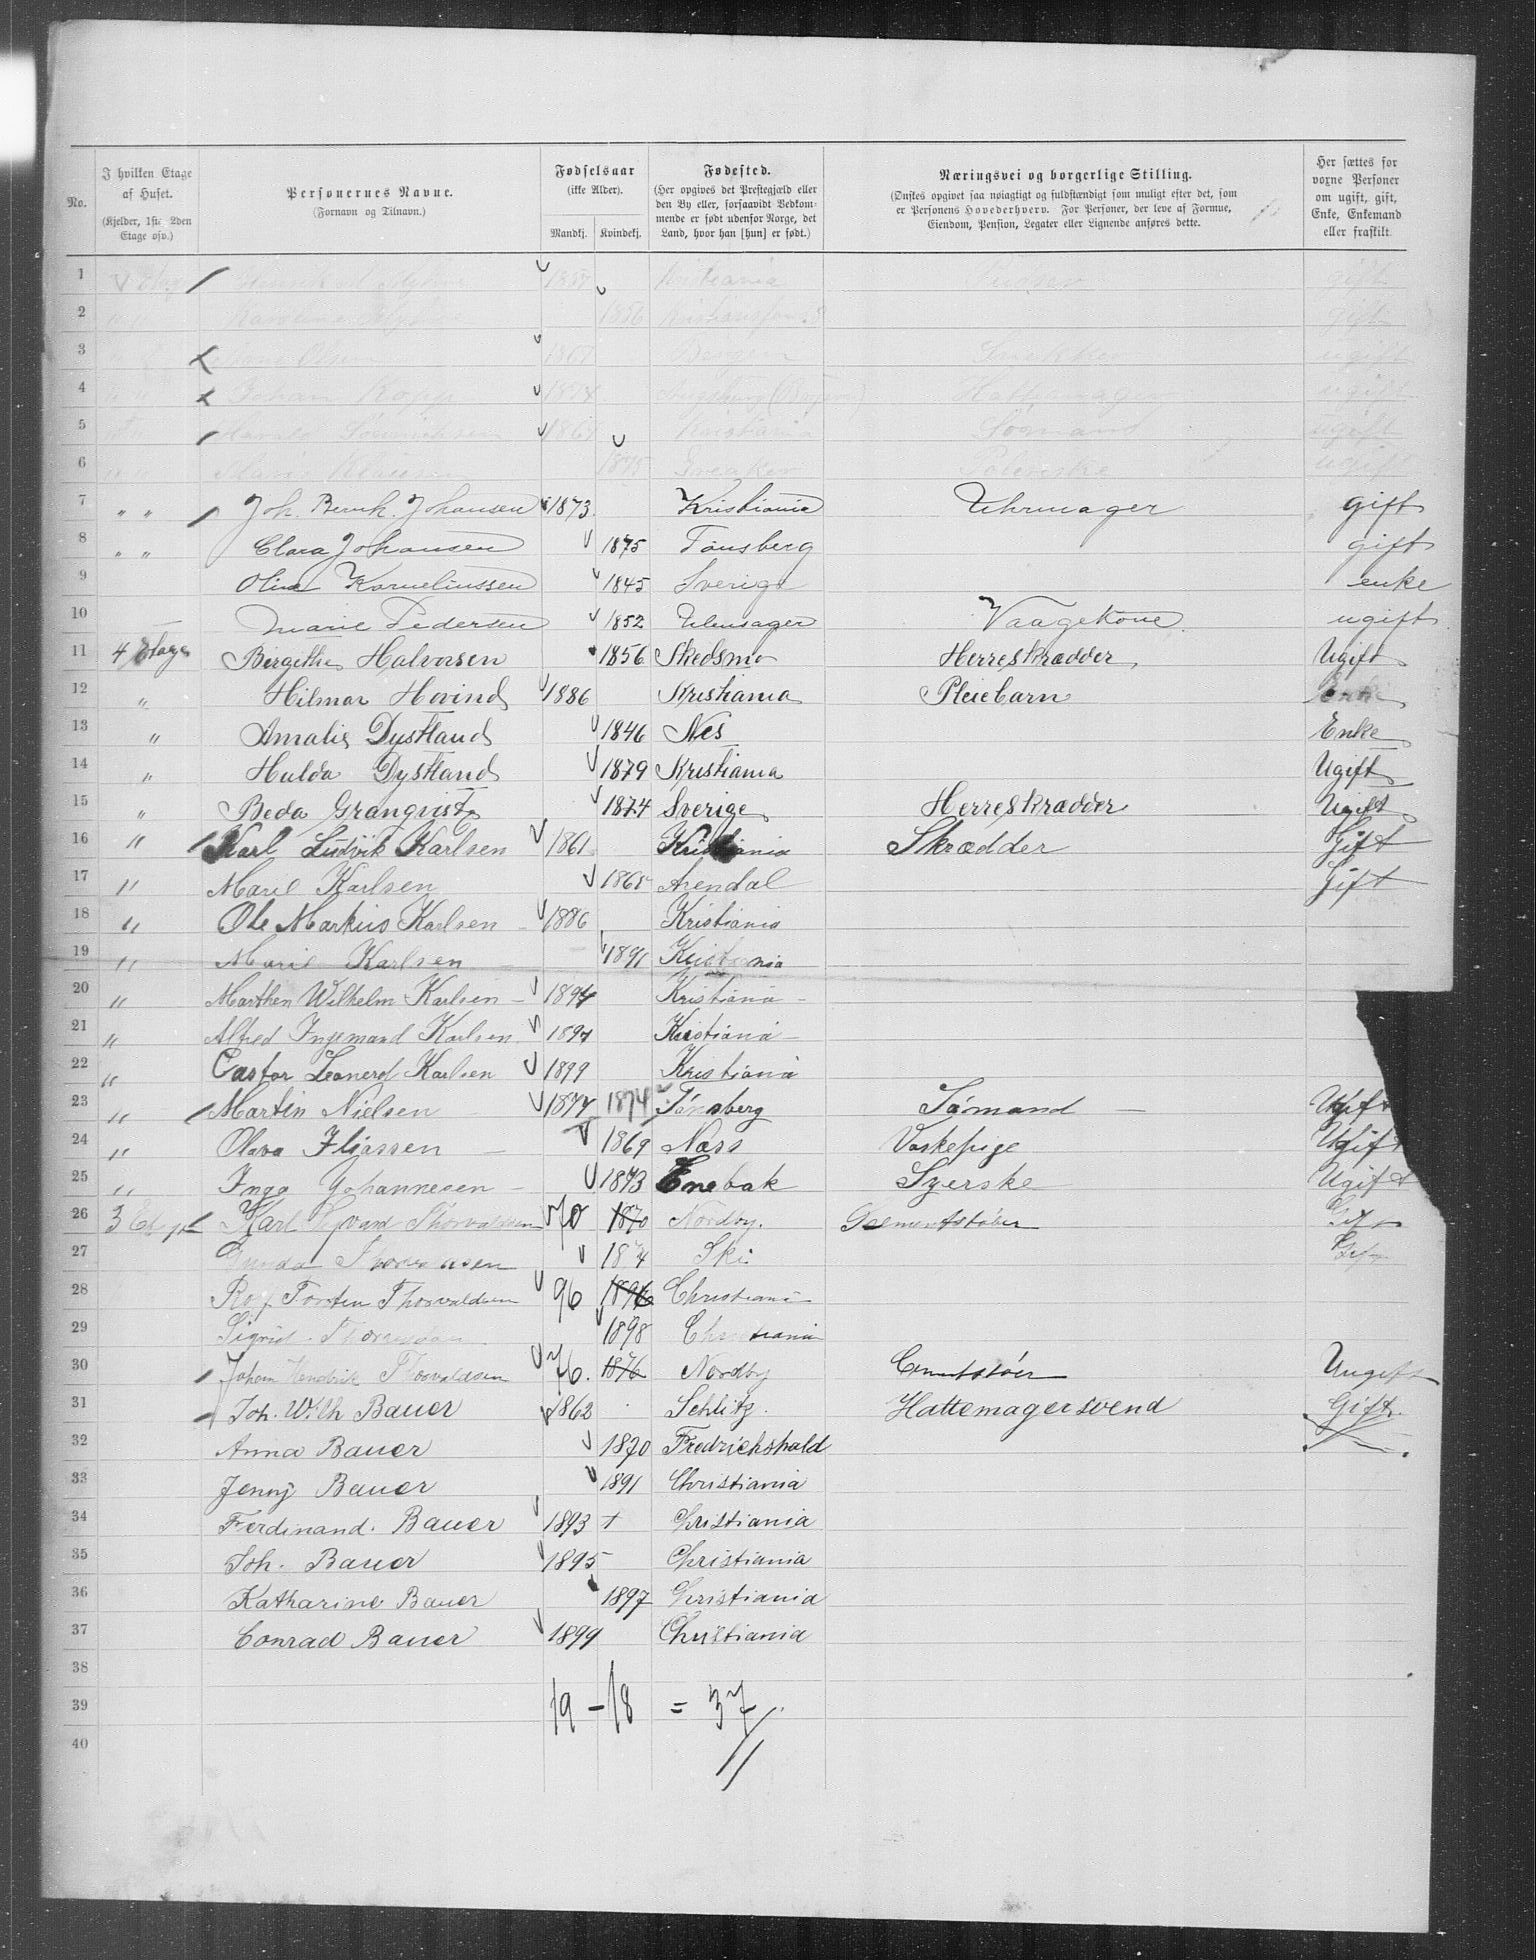 No.
I hvilken Etage af Huset. (Kjelder, 1ste 2den Etage osv.)
Personernes Navne. (Fornavn og Tilnavn.)
Fødselsaar (ikke Alder). Mandkj. Kvindekj.
Fødested. (Her opgives det Prestegjæld eller den By eller, forsaavidt Vedkommende er født udenfor Norge, det Land, hvor han [hun] er født.)
Næringsvei og borgerlige Stilling. (Ønskes opgivet saa nøiagtigt og fuldstændigt som muligt efter det, som er Personens Hovederhverv. For Personer, der leve af Formue, Eiendom, Pension, Legater eller Lignende anføres dette.
Her sættes for voxne Personer om ugift, gift, Enke, Enkemand eller fraskilt.
1 Kristiania gift
2 Karoline 1856 gift
3 Olsen 1867 Bergen Snekker ugift
4 Johan Kopp 1874 Augsburg (Bayern) Hattemager ugift
5 Kristiania Sømand ugift
6 1875 Greaker ugift
7 " " Joh. Bernh. Johansen 1873 Kristiania Uhrmager gift
8 " " Clara Johansen 1875 Tønsberg gift
9 Oline Korneliussen 1845 Sverige enke
10 Marie Pedersen 1852 Ullensager Vaagekone ugift
11 4 Etage Birgithe Halvorsen 1856 Skedsmo Herreskrædder Ugift
12 " Hilmar Hovind 1886 Kristiania Pleiebarn
13 " Amalie Dystland 1846 Nes Enke
14 " Hulda Dystland 1879 Kristiania Ugift
15 " Beda Granqvist 1874 Sverige Herreskrædder Ugift
16 " Karl Ludvik Karlsen 1861 Kristiania Skrædder Gift
17 " Marie Karlsen 1868 Arendal Gift
18 " Ole Markus Karlsen 1886 Kristiania
19 " Marie Karlsen 1891 Kristiania
20 " Marthen Wilhelm Karlsen 1894 Kristiania
21 " Alfred Ingemand Karlsen 1897 Kristiania
22 " Castor Leonerd Karlsen 1899 Kristiania
23 " Martin Nielsen 1877 1874 Tønsberg Sømand Ugift
24 " Olava 1869 Næss Vaskepige Ugift
25 " Inga Johannesen 1873 Enebak Syerske Ugift
26 3 Etage Karl Thorvaldsen 70 1870 Nordby. Sementstøber Gift
27 Gunda Thorvaldsen 1874 Ski Gift
28 Roy Torsten Thorvaldsen 96 1896 Christiania
29 Sigrid Thorvaldsen 1898 Christiania
30 Johan Hendrik Thorvaldsen 76. 1876 Nordby Cementstøber Ungift
31 Joh. Wilh Bauer 1862 Schlitz. Hattemagersvend Gift
32 Anna Bauer 1870 Fredrichshald
33 Jenny Bauer 1891 Christiania
34 Ferdinand. Bauer 1893 + Christiania
35 Joh. Bauer 1895 Christiania
36 Katharine Bauer 1897 Christiania
37 Conrad Bauer 1899 Christiania
38
39 19 - 18 = 37
40